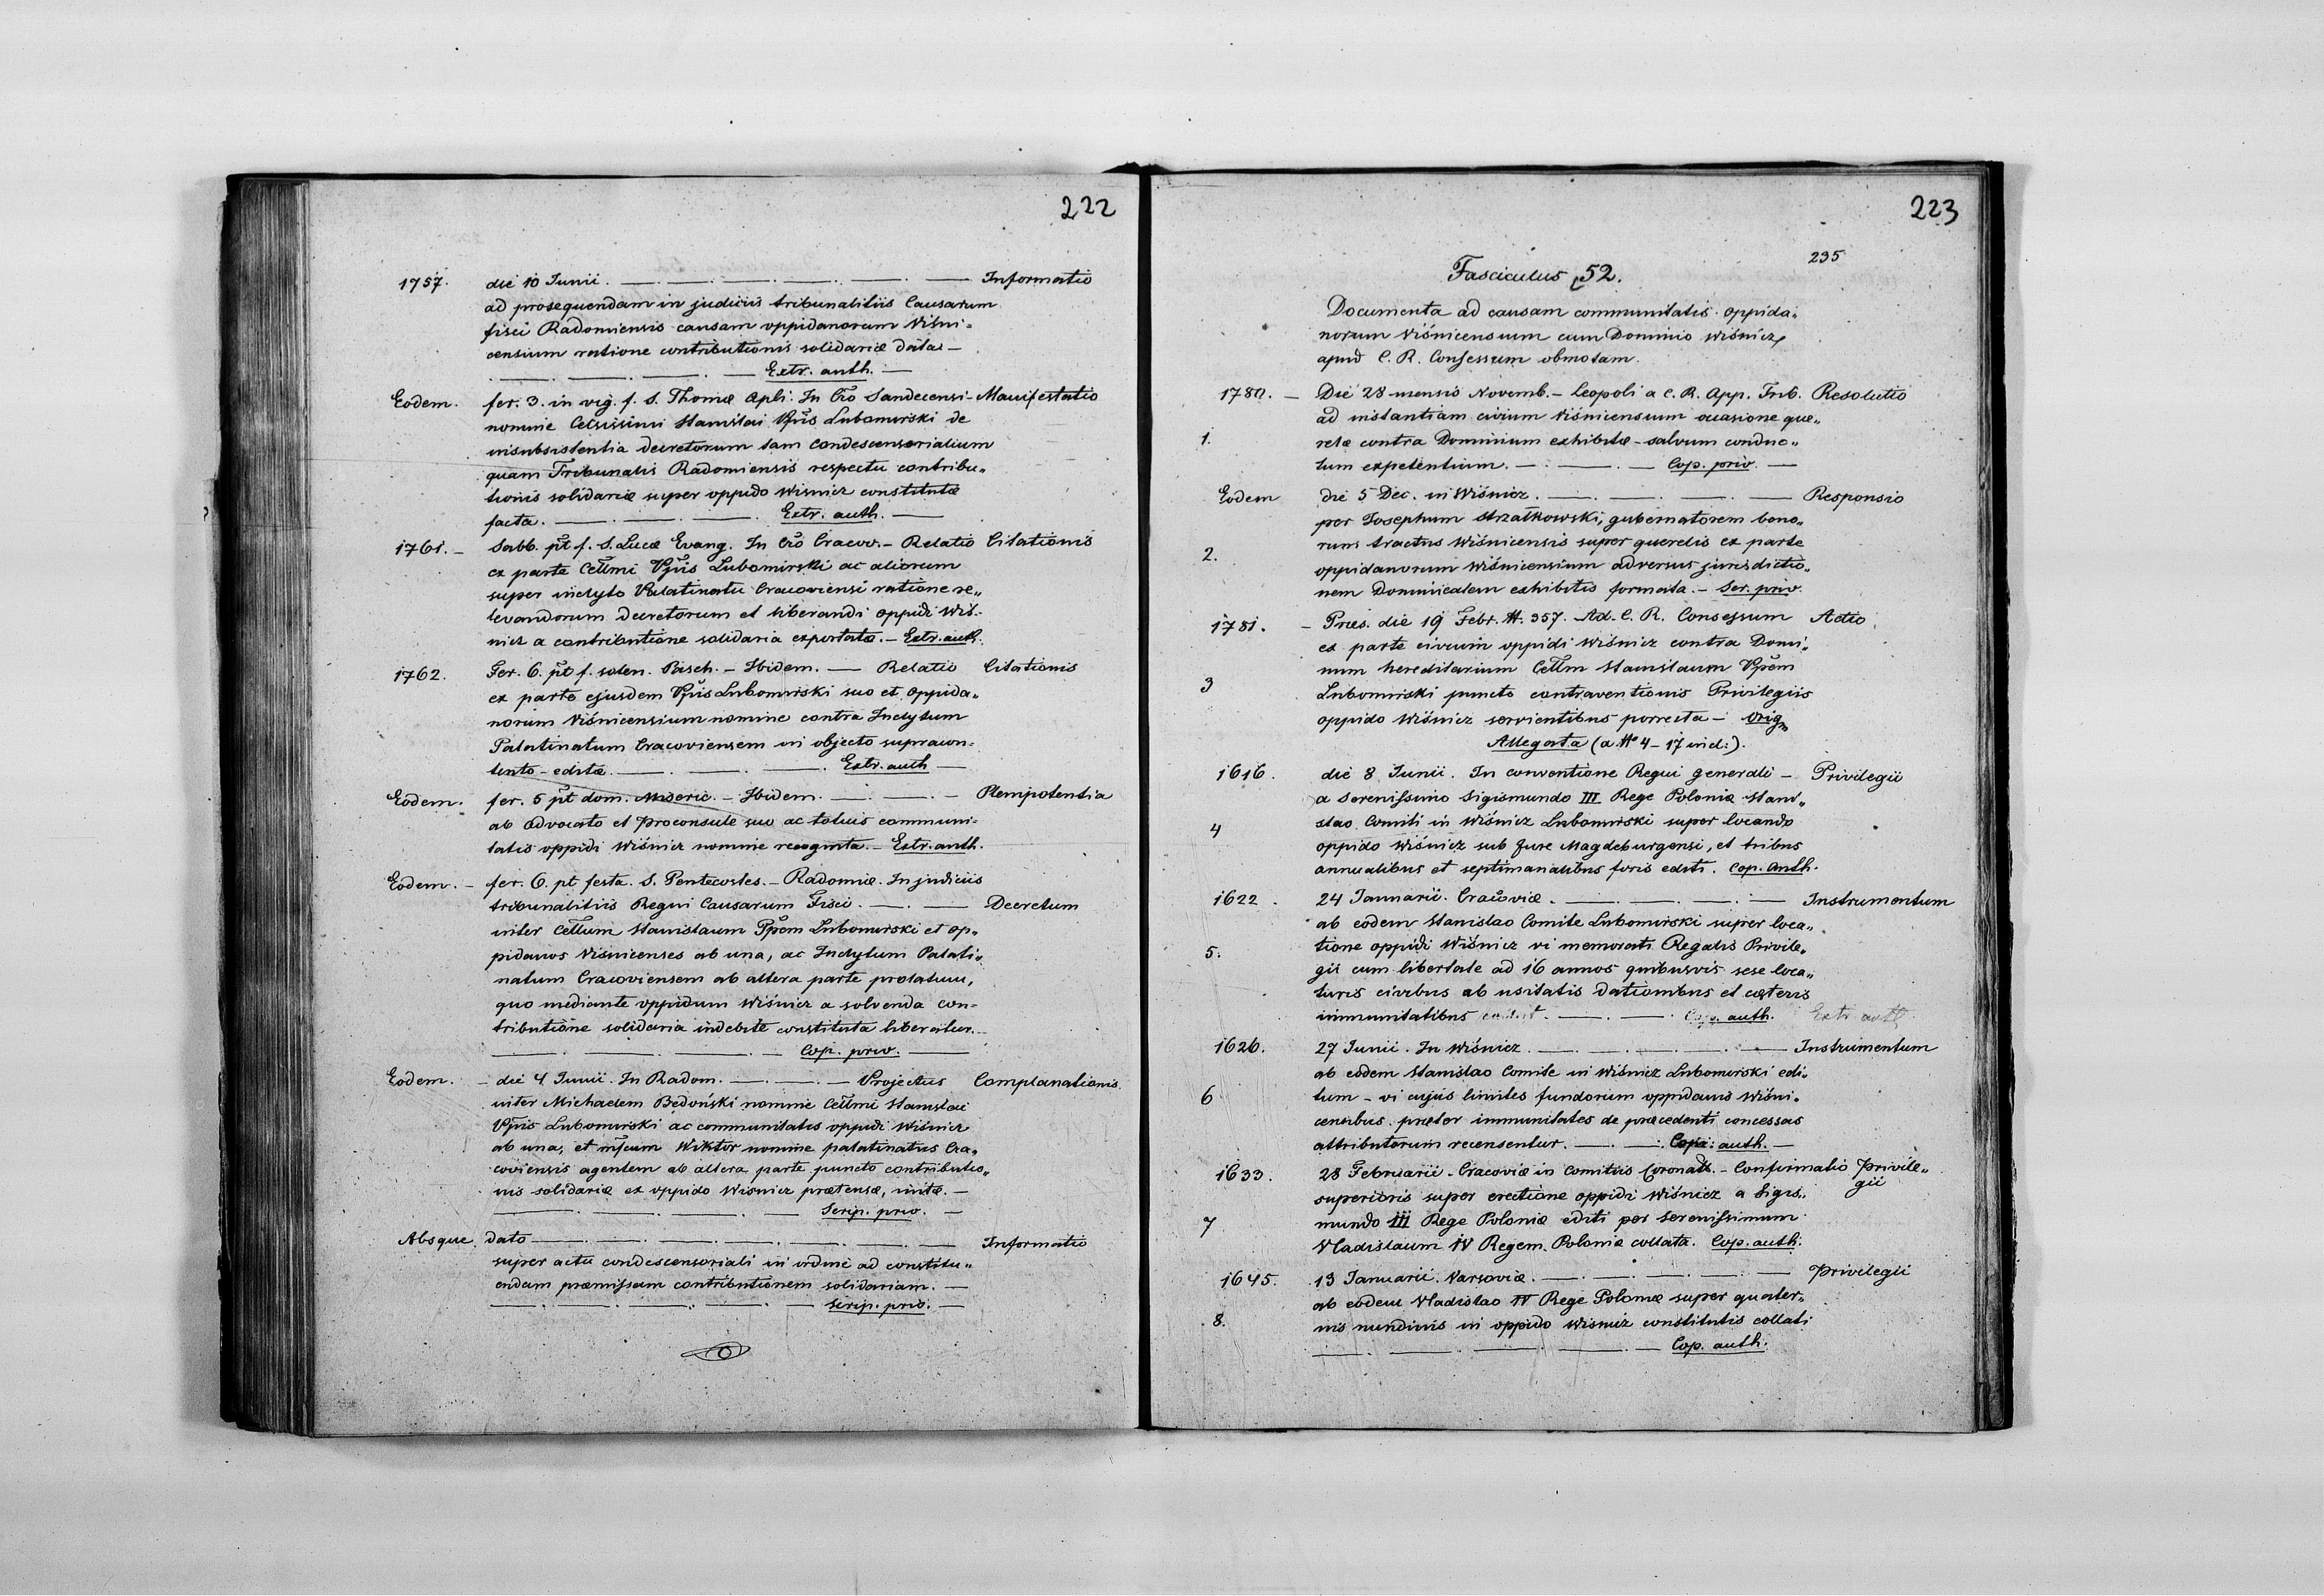 222
1757. die 10 Junii. Informatio
ad prosequendam in judiciis tribunalitiis Causarum
fisci Radomiensis causam oppidanorum Wiśni-
censium ratione contributionis solidariæ data —
Extr. auth. —
Eodem. fer. 3. in vig. f. S. Thomæ Apli. In Cró Sandecensi - Manifestatio
nomine Celsissimi Stanislai Ppis Lubomirski de
insubsistentia decretorum tam condescensorialium
quam Tribunalis Radomiensis respectu contribu„
tionis solidariæ super oppido Wisnicz constitutæ
facta. Extr. auth. —
1761. — Sabb. pt f. S. Lucæ Evang. In Cró Cracov. — Relatio Citationis
ex parte Cellmi Ppis Lubomirski ac aliorum
super inclyto Palatinatu Cracoviensi ratione re„
levandorum decretorum et liberandi oppidi Wiś-
nicz a contributione solidaria exportatæ. — Extr. auth.
1762. Fer. 6. pt f. solen. Pasch. — Ibidem. — Relatio Citationis
ex parte ejusdem Ppis Lubomirski suo et oppida„
norum Wiśnicensium nomine contra Inclytum
Palatinatum Cracoviensem in objecto supracon-
tento - editæ. Extr. auth —
Eodem. fer. 5 pt dom. Miseric. — Ibidem. — Plenipotentia
ab Advocato et Proconsule suo ac totius communi-
tatis oppidi Wiśnicz nomine recognita. — Extr. auth.
Eodem. — fer. 6. pt festa. S. Pentecostes. — Radomiæ. In judiciis
tribunalitiis Regni Causarum Fisci. — Decretum
inter Cellum Stanislaum Ppem Lubomirski et op„
pidanos Wisnicenses ab una, ac Inclytum Palati„
natum Cracoviensem ab altera parte prolatum,
quo mediante oppidum Wiśnicz a solvenda con-
tributione solidaria indebite constituta liberatur. —
Cop. priv. —
Eodem. — die 4 Junii. In Radom. — Projectus Complanationis
inter Michaelem Bedoński nomine Cellmi Stanislai
Ppis Lubomirski ac communitatis oppidi Wiśnicz
ab una, et Wiktor nomine palatinatus Cra„
coviensis agentem ab altera parte puncto contributio„
nis solidariæ ex oppido Wisnicz prætensæ, initæ. —
Scrip. priv. —
Absque dato — Informatio
super actu condescensoriali in ordine ad constitu„
endam præmissam contributionem solidariam. —
Scrip. priv. —
223
235
Fasciculus 52.
Documenta ad causam communitatis oppida„
norum Wiśnicensium cum Dominio Wiśnicz,
apud C. R. Consessum obmotam.
1780. — Die 28 mensis Novemb. — Leopoli a C. R. App. Trib. Resolutio
ad instantiam civium Wiśnicensium occasione que„
1. relæ contra Dominium exhibitæ — salvum conduc„
tum expetentium. — Cop. priv. —
Eodem die 5 Dec. in Wiśnicz. — Responsio
per Josephum Strzałkowski, gubernatorem bono„
rum tractus Wiśnicensis super querelis ex parte
2. oppidanorum Wiśnicensium adversus jurisdictio„
nem Dominicalem exhibitis formata. — Scr. priv.
1781. — Præs. die 19 Febr. N. 357. Ad C. R. Consessum Actio
ex parte civium oppidi Wiśnicz contra Domi„
num hereditarium Cellm Stanislaum Ppem
3 Lubomirski puncto contraventionis Privilegiis
oppido Wiśnicz servientibus porrecta — Orig„
Allegata (a No 4 - 17 incl:).
1616. die 8 Junii. In conventione Regni generali — Privilegii
a Serenissimo Sigismundo III Rege Poloniæ Stani„
4 slao Comiti in Wiśnicz Lubomirski super locando
oppido Wiśnicz sub jure Magdeburgensi, et tribus
annualibus et septimanalibus foris editi. Cop. Auth.
1622. 24 Januarii. Cracoviæ. — Instrumentum
ab eodem Stanislao Comite Lubomirski super loca„
5. tione oppidi Wiśnicz vi memorati Regalis Privile„
gii cum libertate ad 16 annos quibusvis sese loca„
turis civibus ab usitatis dationibus et cæteris
immunitatibus — Cop. auth. Extr. auth
1626. 27 Junii. In Wiśnicz. — Instrumentum
ab eodem Stanislao Comite in Wiśnicz Lubomirski edi„
6 tum — vi cujus limites fundorum oppidanis Wiśni„
censibus præter immunitates de præcedenti concessas
attributorum recensentur. — Copi: auth. —
1633. 28 Februarii. Cracoviæ in Comitiis Coronatt. — Confirmatio Privile„
gii
superioris super erectione oppidi Wiśnicz a Sigis„
7 mundo III Rege Poloniæ editi per Serenissimum
Vladislaum IV Regem Poloniæ collata. Cop. auth.
1645. 13 Januarii. Varsoviæ. — Privilegii
ab eodem Vladislao IV Rege Poloniæ super quater„
8. nis nundinis in oppido Wisnicz constitutis collati
Cop. auth.